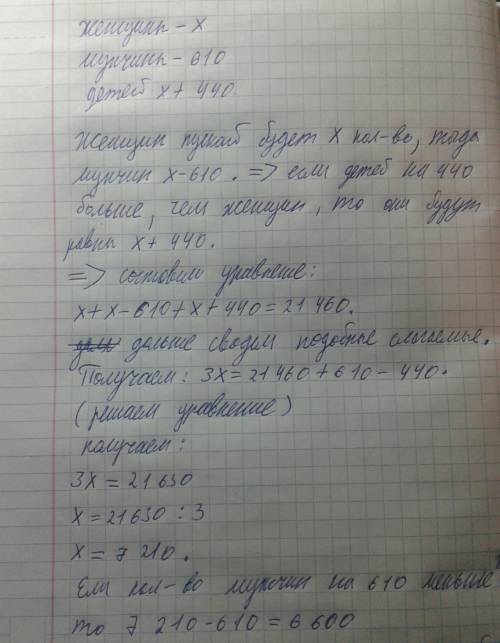 Женщины - х
мужчины - 610
детей х + 440.
Женщин пускай будет х кол-во, тогда
мужчин х-610. => если детей на 440
больше, чем женщин, то они будут
равны х + 440.
=> составим уравнение:
х+х-610+х+440=21 460.
дальше сводим подобные слагаемые.
Получаем: 3х=21460+610-440.
(решаем уравнение)
получаем:
3х = 21630
х = 21630 : 3
х = 7 210.
Если кол-во мужчин на 610 меньше
то 7 210-610 = 6 600